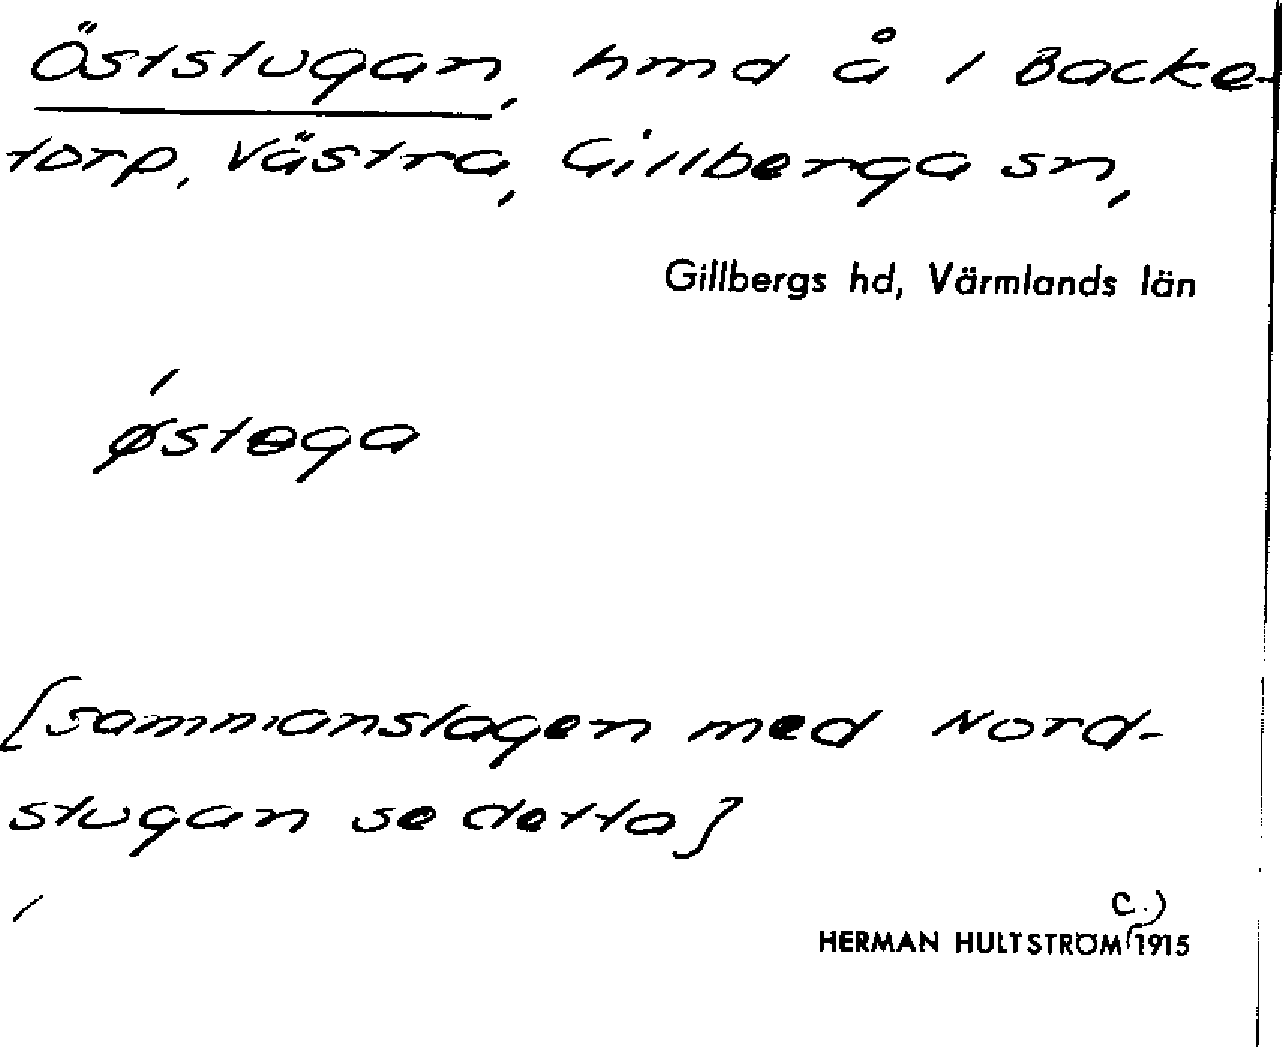 Öststugan, hmd å 1 Backe-
torp, Västra, Gillberga sn,
Gillbergs hd, Värmlands län
ǿstɵga
[sammanslagen med Nord-
stugan se detta]
C.)
HERMAN HULTSTRÖM 1915